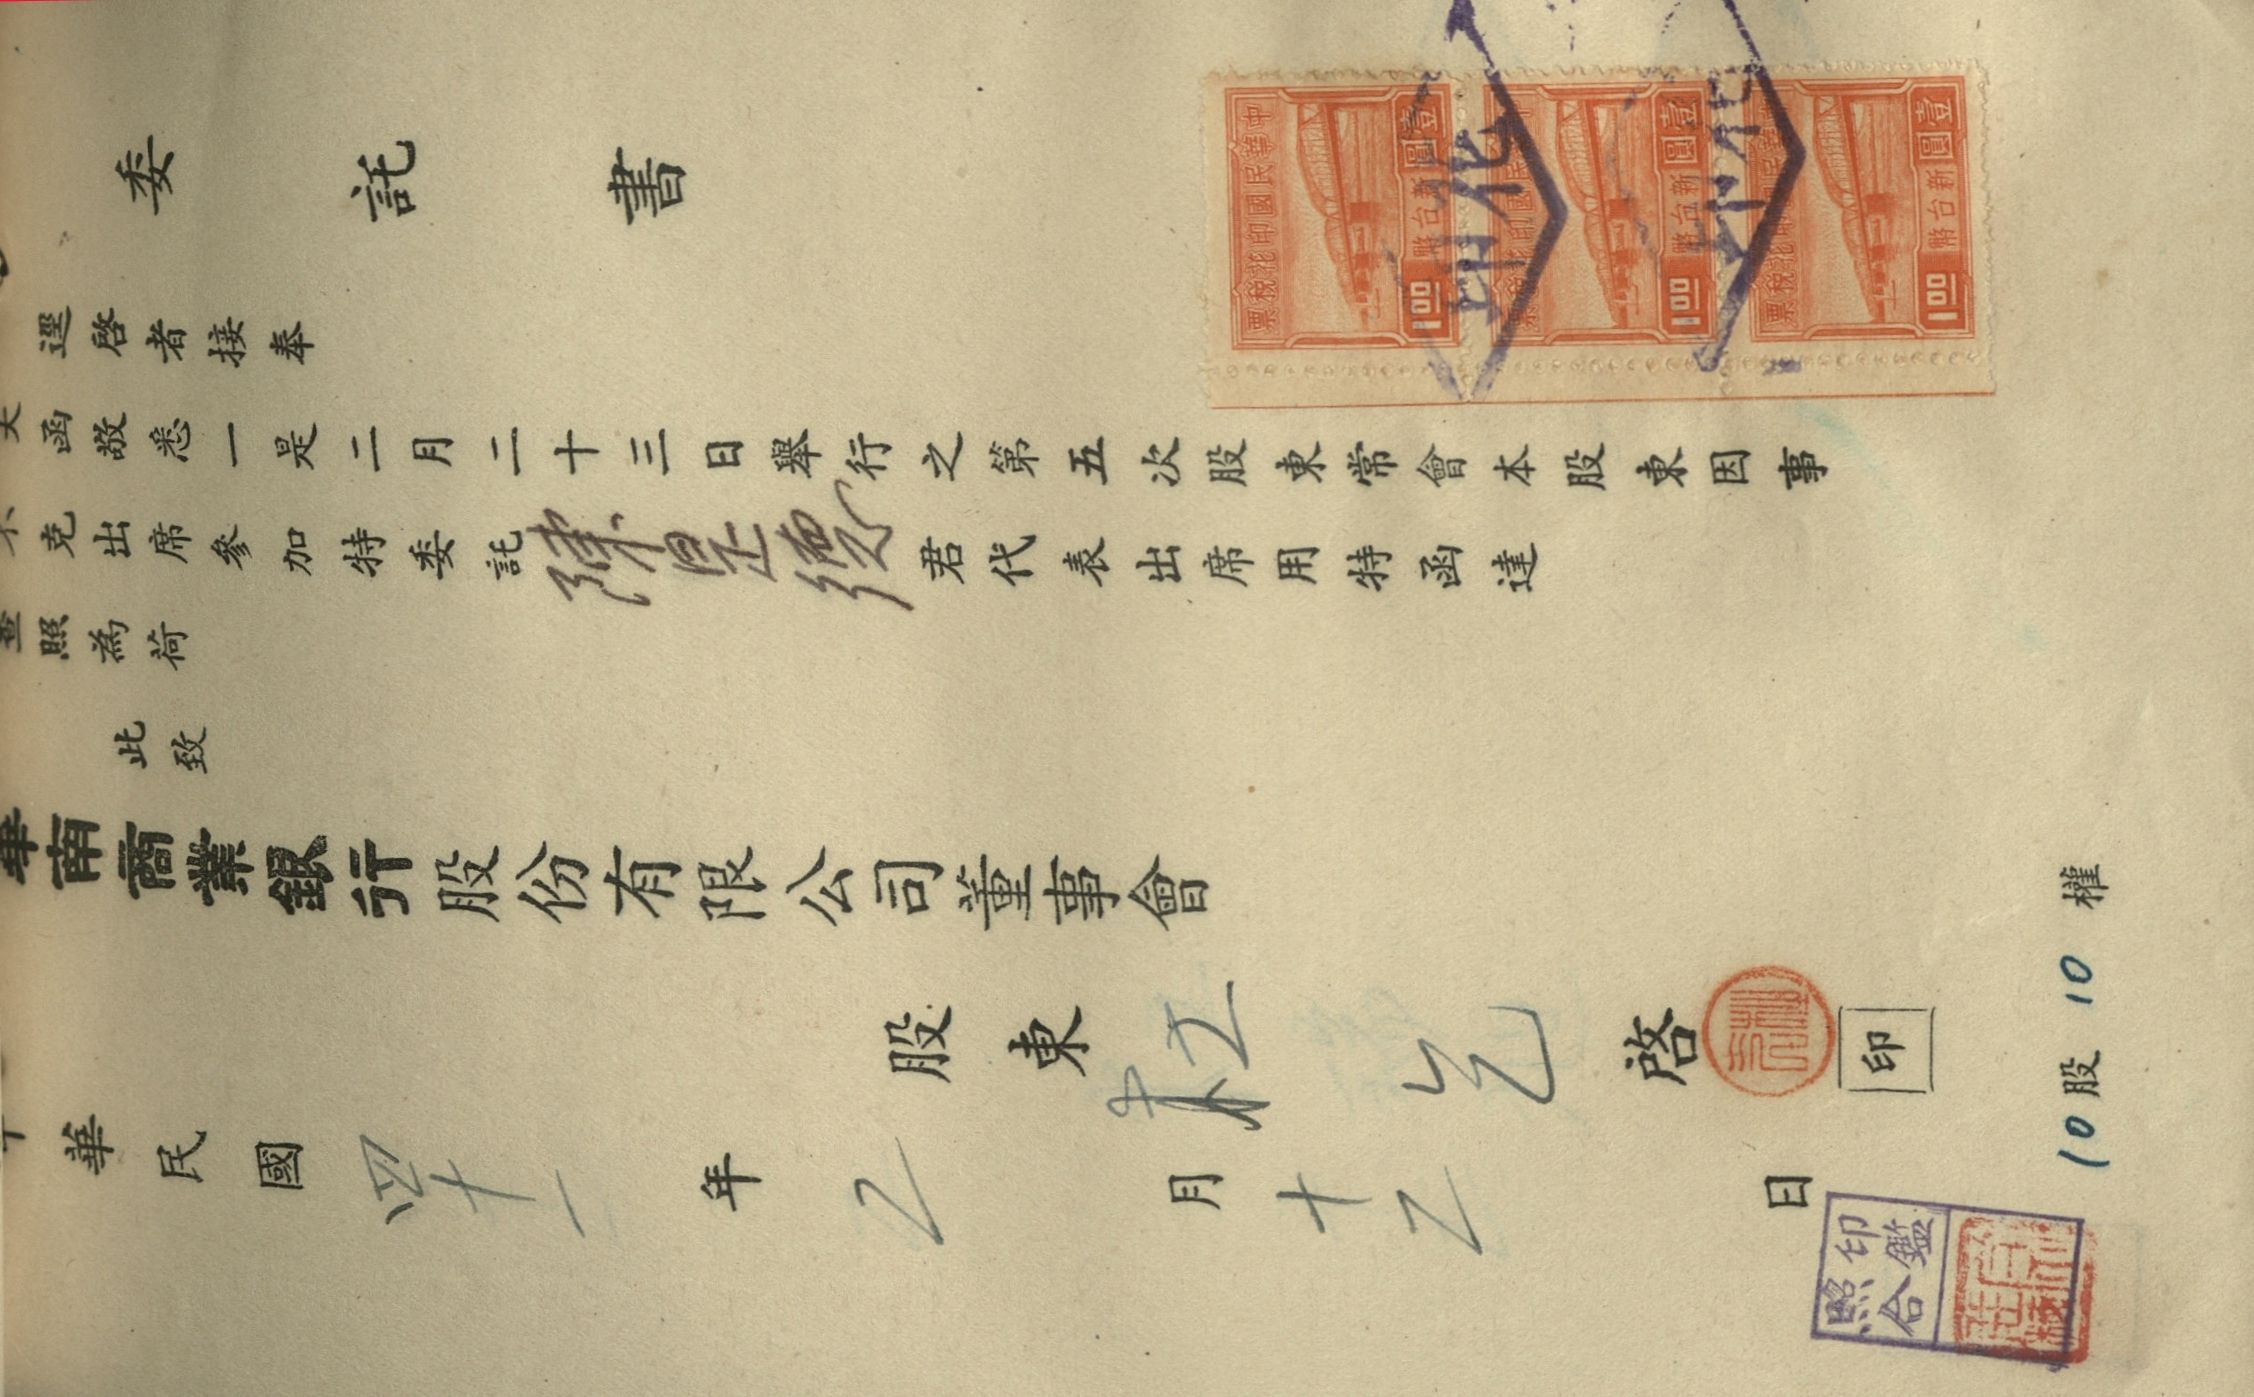 委託書
逕啓者接奉
大函敬悉一是二月二十三日舉行之第五次股東常會本股東因事
不克出席參加特委託陳是德君代表出席用特函達
查照為荷
此致
華南商業銀行股份有限公司董事會
股東 啓
印
中華民國四十一年2月十2日
10股10權
印鑑
照合
中華民國印花稅票
壹圓
新台幣
1.00
壹圓
新台幣
1.00
壹圓
新台幣
1.00
印花